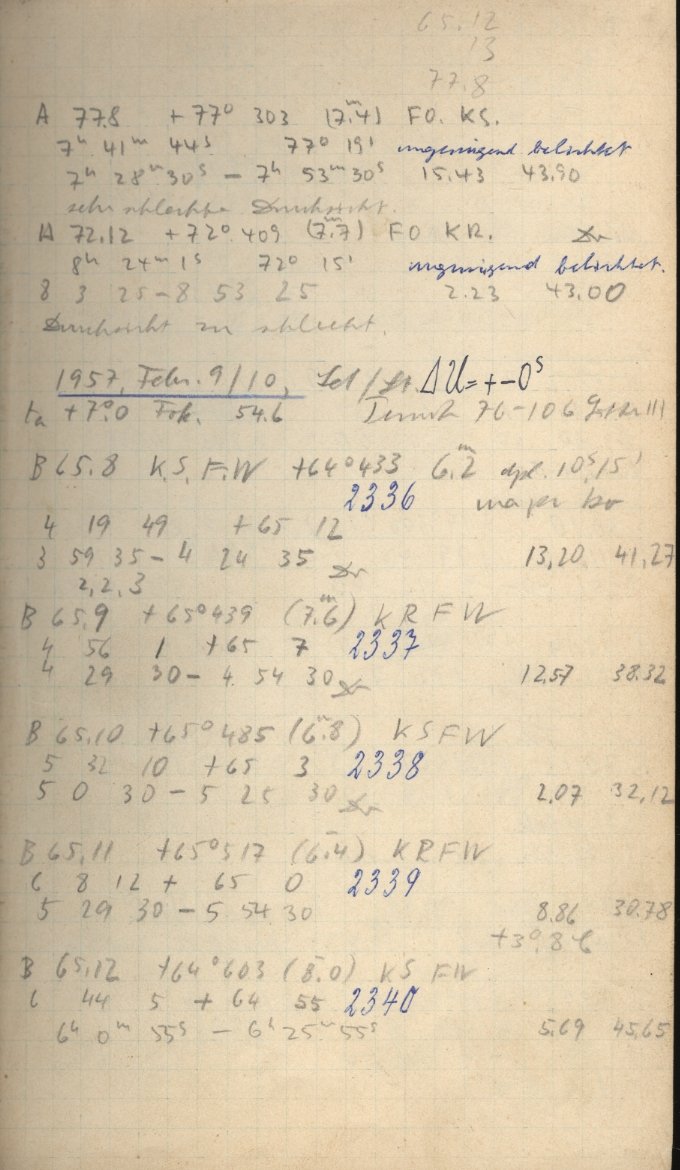 65.12
13
77.8
A 77.8 +77° 303 (7.ᵐ4) FO. KS.
7ʰ 41ᵐ 44ˢ 77° 19' ungenügend belichtet
7ʰ 28ᵐ 30ˢ – 7ʰ 53ᵐ 30ˢ 15.43 43.90
sehr schlechte Durchsicht.
A 72.12 +72° 409 (7.ᵐ7) FO KR.
8ʰ 24ᵐ 1ˢ 72° 15' ungenügend belichtet.
8 3 25 – 8 53 25 2.23 43.00
Durchsicht zu schlecht.
1957, Febr. 9/10, ΔU = +–0ˢ
ta +7°.0 Fok. 54.6 76–106
B 65.8 K.S. F.W +64°433 6.ᵐ2 dpl. 10ˢ,15'
2336 major
4 19 49 +65 12
3 59 35 – 4 24 35 13,20 41,27
2,2,3
B 65.9 +65°439 (7.ᵐ6) KR FW
4 56 1 +65 7 2337
4 29 30 – 4 54 30 12.57 38.32
B 65.10 +65°485 (6.ᵐ8) KS FW
5 32 10 +65 3 2338
5 0 30 – 5 25 30 2,07 32,12
B 65.11 +65°517 (6.4) KR FW
6 8 12 + 65 0 2339
5 29 30 – 5 54 30 8.86 30.78
+3°.86
B 65.12 +64°603 (8.0) KS FW
6 44 5 + 64 55 2340
6ʰ 0ᵐ 55ˢ – 6ʰ 25ᵐ 55ˢ 5.69 45.65